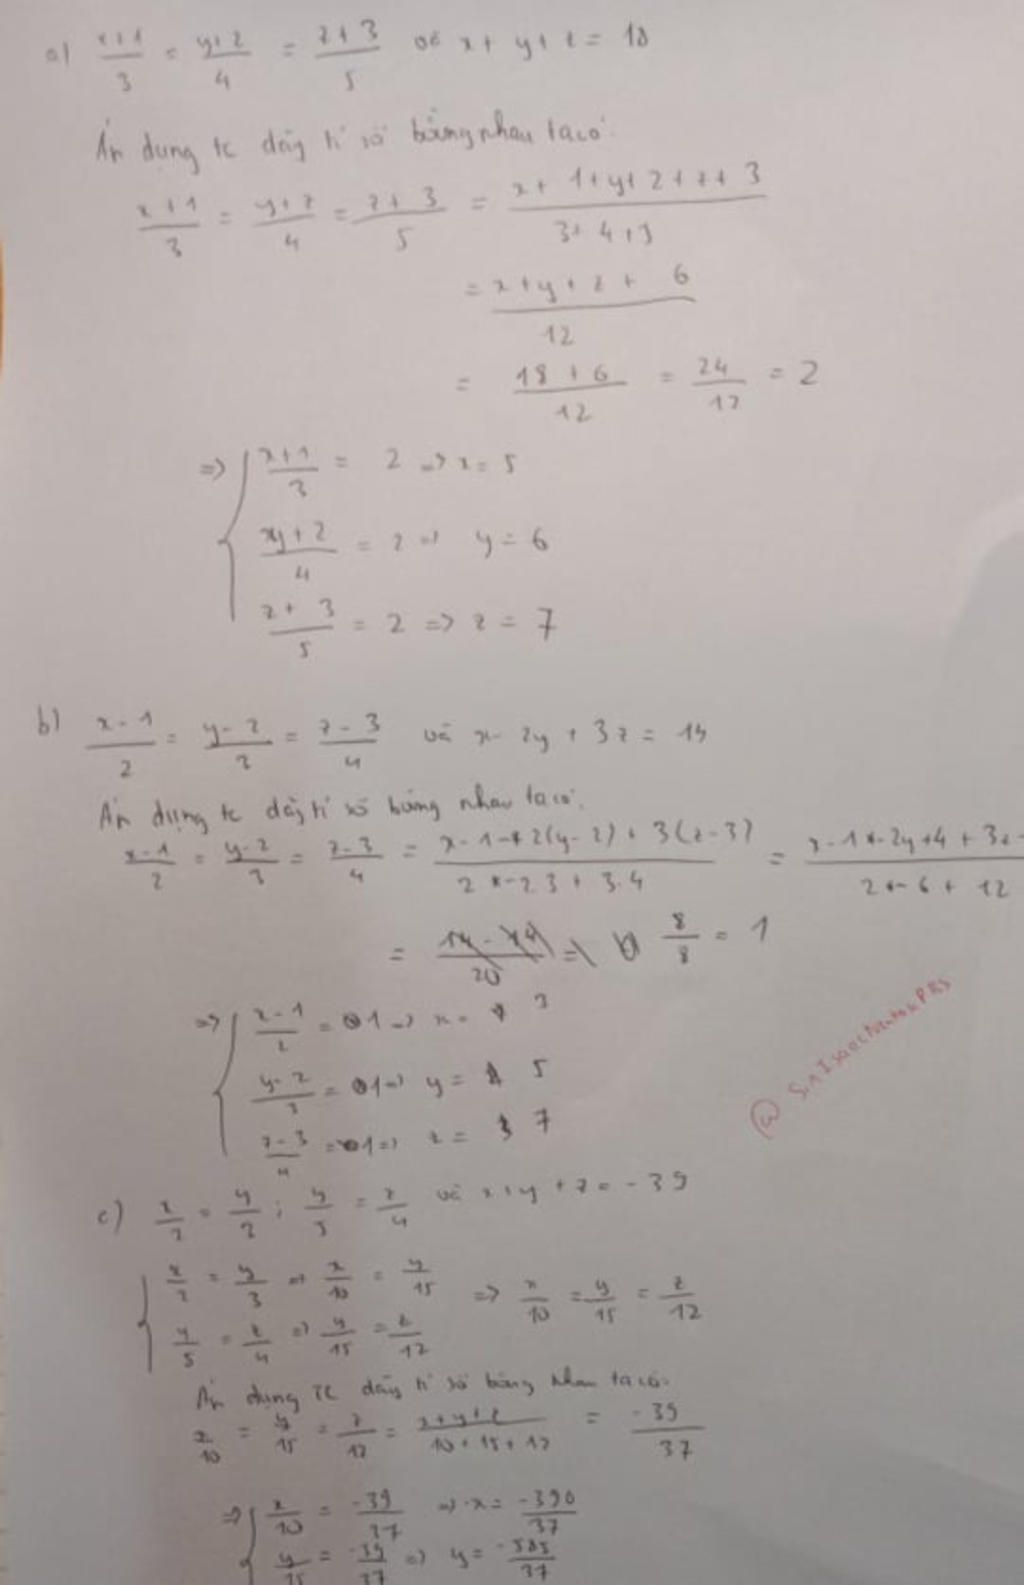 a) x+1/3 = y+2/4 = z+3/5 và x + y + z = 18
Áp dụng tc dãy tỉ số bằng nhau ta có:
x+1/3 = y+2/4 = z+3/5 = x+1+y+2+z+3/3+4+5
= x+y+z+6/12
= 18+6/12 = 24/12 = 2
=> { x+1/3 = 2 => x = 5
y+2/4 = 2 => y = 6
z+3/5 = 2 => z = 7
b) x-1/2 = y-2/3 = z-3/4 và x - 2y + 3z = 14
Áp dụng tc dãy tỉ số bằng nhau ta có:
x-1/2 = y-2/3 = z-3/4 = x-1-2(y-2)+3(z-3)/2-2.3+3.4 = x-1-2y+4+3z-/2-6+12
= 8/8 = 1
=> { x-1/2 = 1 => x = 3
y-2/3 = 1 => y = 5
z-3/4 = 1 => z = 7
@ SirIsaacNewtonPRS
c) x/2 = y/3 ; y/5 = z/4 và x+y+z = -39
{ x/2 = y/3 => x/10 = y/15 => x/10 = y/15 = z/12
y/5 = z/4 => y/15 = z/12
Áp dụng TC dãy tỉ số bằng nhau ta có:
x/10 = y/15 = z/12 = x+y+z/10+15+12 = -39/37
=> { x/10 = -39/37 => x = -390/37
y/15 = -39/37 => y = -585/37